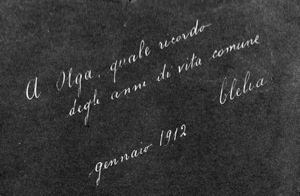 A Olga, quale ricordo
degli anni di vita comune
Clelia
gennaio 1912